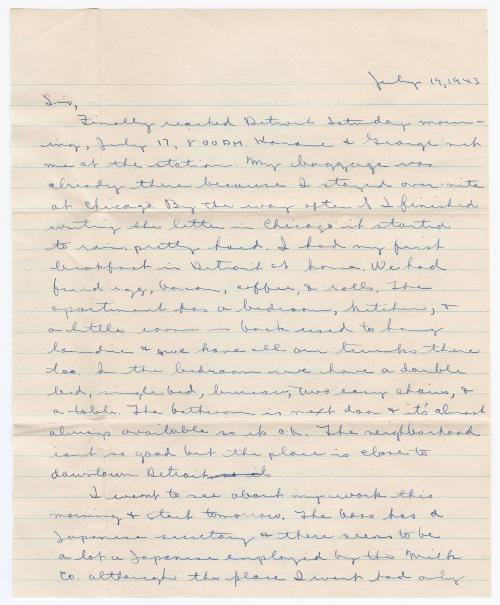 July 19, 1943
Sis,
Finally reached Detroit Saturday morn-
ing, July 17, 8:00AM. Kaname & George met
me at the station. My baggage was
already there because I stayed over-nite
at Chicago. By the way after I finished
writing the letter in Chicago it started
to rain pretty hard. I had my first
breakfast in Detroit at home. We had
fried egg, bacon, coffee, & rolls. The
apartment has a bedroom, kitchen, &
a little room in back used to hang
laundrie & we have all our trunks there
too. In the bedroom we have a double
bed, single bed, bureau, two easy chairs, &
a table. The bathroom is next door & it's almost
always available so its ok. The neighborhood
isnt so good but the place is close to
downtown Detroit
I went to see about my work this
morning & start tomorrow. The boss has a
Japanese secretary & there seems to be
a lot a Japanese employed by the Milk
Co. although the place I went had only